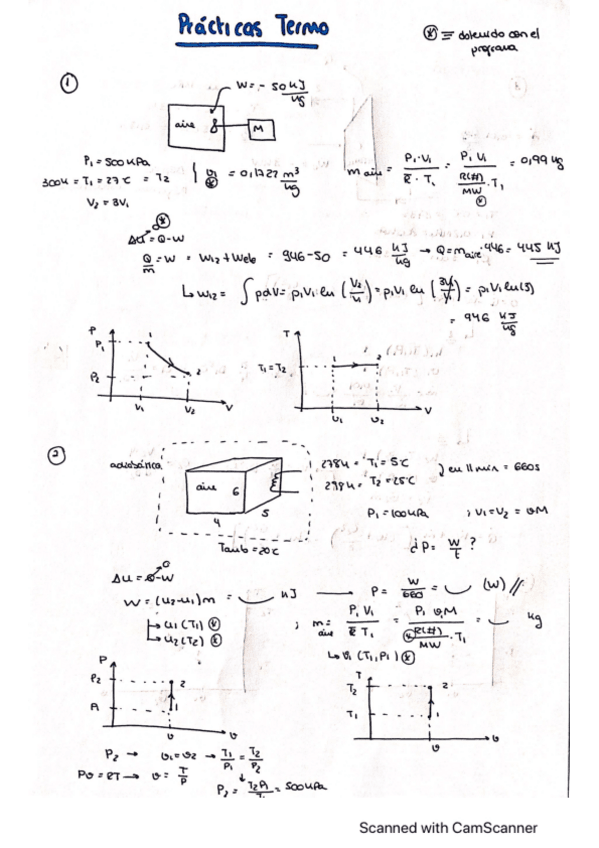 Prácticas Termo
⊛ ≡ obtenido con el
programa
①
W = - 50 kJ/kg
aire
M
P₁ = 500 kPa
300K = T₁ = 27°C = T₂
V₂ = 3V₁
v ⊛ = 0,1727 m³/kg
m aire = P₁·V₁ / R·T₁ = P₁V₁ / (R(#)/MW ⊛ · T₁) = 0,99 kg
Δu = Q-W
Q/m = W = W₁₂ + Wele = 946-50 = 446 kJ/kg → Q = m aire · 446 = 445 kJ
↳ W₁₂ = ∫ pdV = p₁V₁ ln (V₂/V₁) = p₁V₁ ln (3V₁/V₁) = p₁V₁ ln(3)
= 946 kJ/kg
P
P₁
P₂
1
2
V₁
V₂
V
T
T₁ = T₂
1
2
V₁
V₂
V
②
adiabática
aire
6
5
4
Tamb = 20°C
278K = T₁ = 5°C
298K = T₂ = 25°C
en 11 min = 660s
P₁ = 100 kPa ; V₁ = V₂ = vM
¿ P = W/t ?
Δu = Q-W
0
W = (u₂-u₁)m = kJ → P = W/660 = (W) //
↳ u₁ (T₁) ⊛
↳ u₂ (T₂) ⊛
; m aire = P₁V₁ / R T₁ = P₁ vM / (⊛ R(#)/MW · T₁) = kg
↳ v₁ (T₁, P₁) ⊛
P
P₂
P₁
2
1
v
v
T
T₂
T₁
2
1
v
v
P₂ → v₁ = v₂ → T₁/P₁ = T₂/P₂
Pv = RT → v = T/P
P₂ = T₂P₁/T₁ = 500 kPa
Scanned with CamScanner